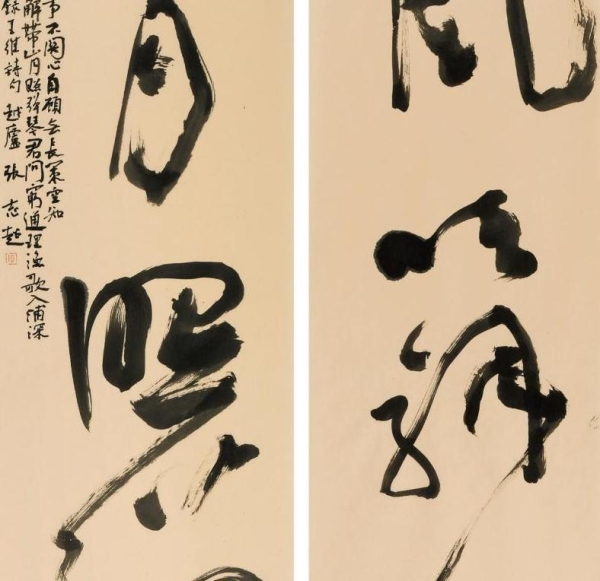 風吹解
月照
事不関心自顧無長策空知
解帶山月照弹琴君問窮通理漁歌入浦深
録王維詩句 越廬 張志